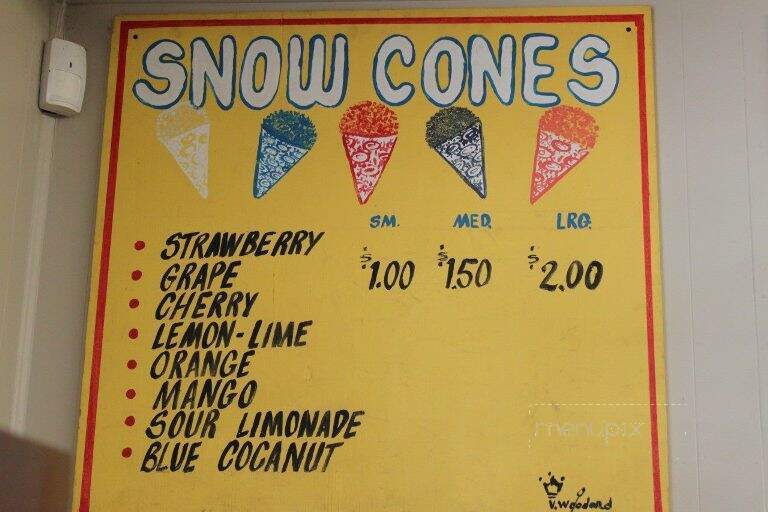 SNOW CONES
SM. MED. LRG.
• STRAWBERRY $1.00 $1.50 $2.00
• GRAPE
• CHERRY
• LEMON-LIME
• ORANGE
• MANGO
• SOUR LIMONADE
• BLUE COCANUT
menupix
V. Woodard